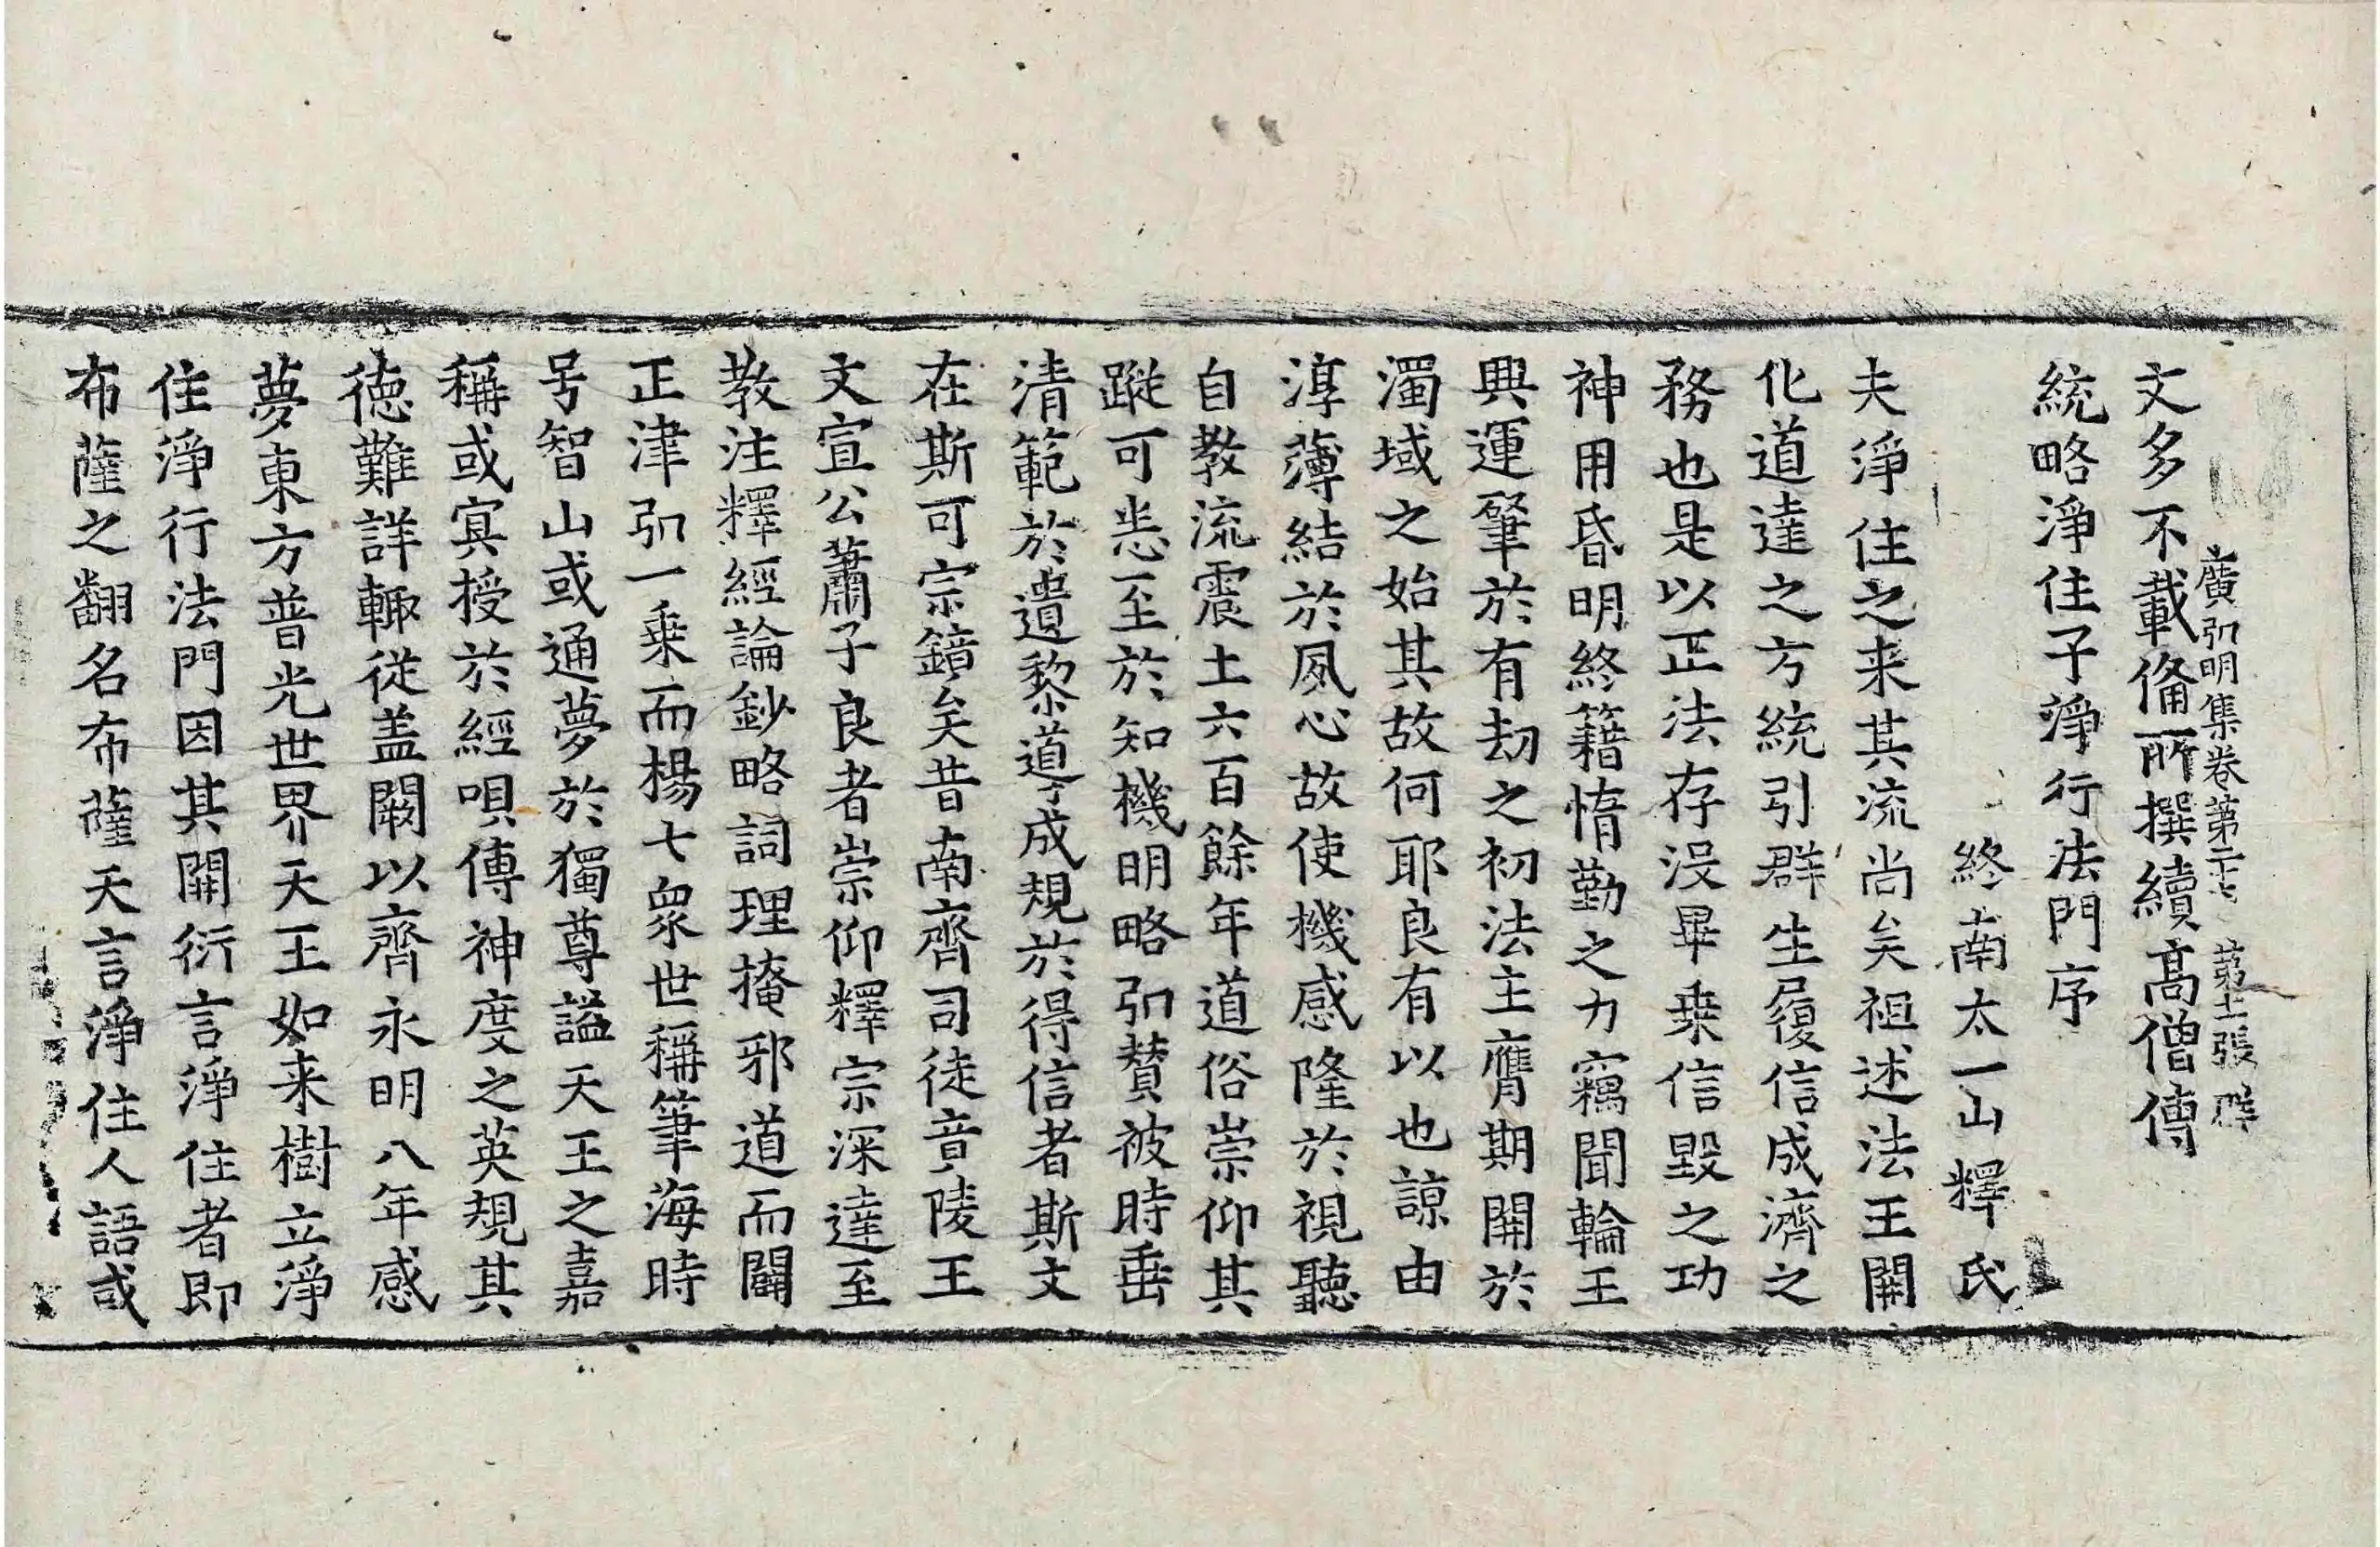 廣弘明集卷第二十七 第十張 群
文多不載備所撰續高僧傳
統略淨住子淨行法門序
終南太一山釋氏
夫淨住之来其流尚矣祖述法王開
化道達之方統引群生履信成濟之
務也是以正法存没畢乗信毀之功
神用昏明終籍惰勤之力竊聞輪王
興運肇於有劫之初法主膺期開於
濁域之始其故何耶良有以也諒由
淳薄結於夙心故使機感隆於視聽
自教流震土六百餘年道俗崇仰其
蹤可悉至於知機明略弘賛被時垂
清範於遺黎導成規於得信者斯文
在斯可宗鏡矣昔南齊司徒竟陵王
文宣公蕭子良者崇仰釋宗深達至
教注釋經論鈔略詞理掩邪道而闢
正津弘一乗而楊七衆世稱筆海時
号智山或通夢於獨尊謚天王之嘉
稱或冥授於經唄傳神度之英規其
徳難詳輙從盖闕以齊永明八年感
夢東方普光世界天王如来樹立淨
住淨行法門因其開衍言淨住者即
布薩之翻名布薩天言淨住人語或